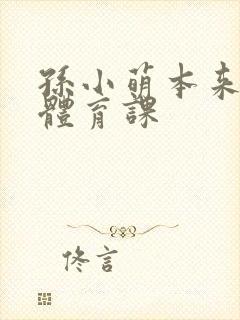 孫小萌本来
體育課
佟言